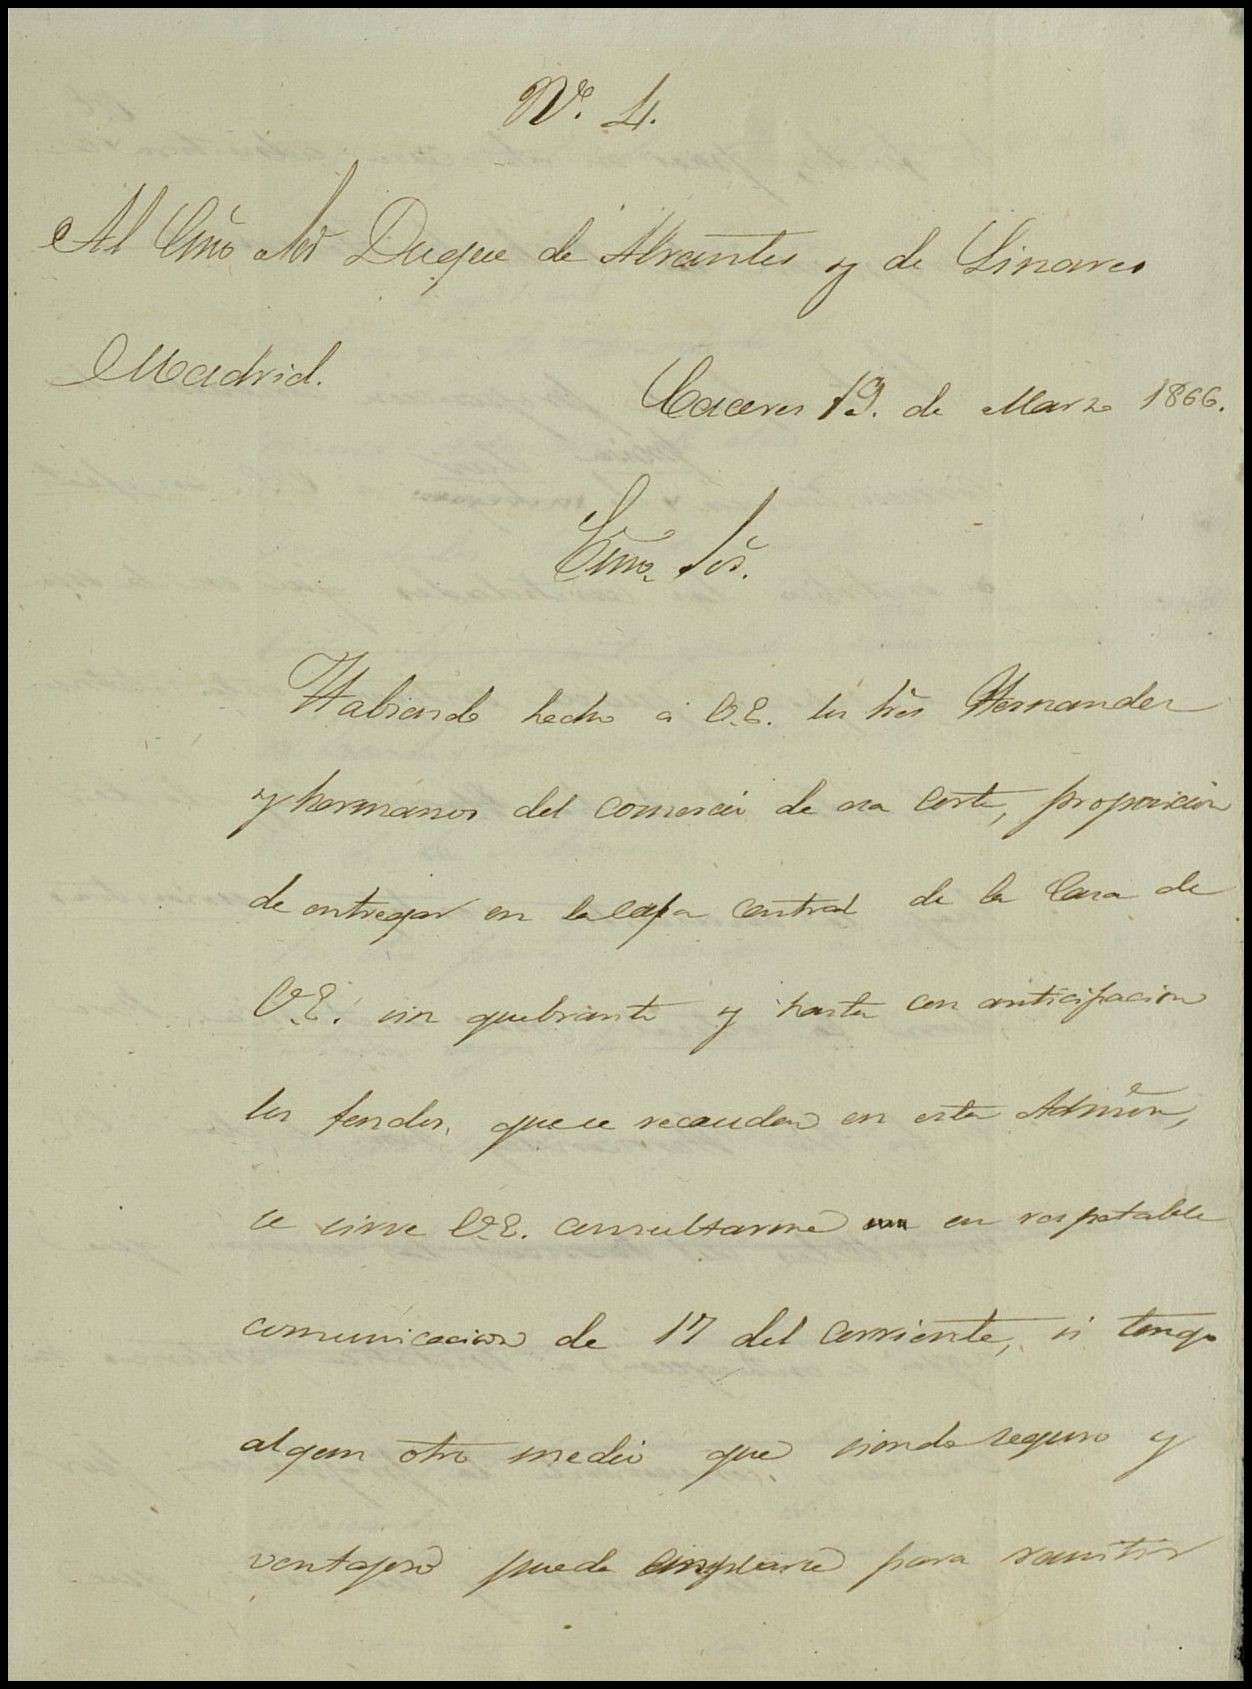 Nº. 4.
Al Exmo Sor Duque de Abrantes y de Linares
Madrid.
Caceres 19. de Marzo 1866.
Exmo. Sor.
Habiendo hecho á V.E. los Sres Hernandez
y hermanos del comercio de esa Corte, proposicion
de entregar en la caja central de la Casa de
V.E. sin quebranto y hasta con anticipacion
los fondos, que se recaudan en esta Admon,
se sirve V.E. consultarme en su respetable
comunicacion de 17 del corriente, si tengo
algun otro medio que siendo seguro y
ventajoso pueda emplearse para remitir